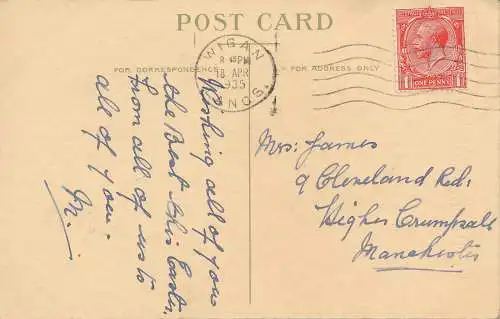 POST CARD
FOR CORRESPONDENCE
FOR ADDRESS ONLY
WIGAN
8 45 PM
18 APR
1935
LANCS
POSTAGE REVENUE
ONE PENNY
Wishing all of you
the Best this Easter,
from all of us to
all of you.
M.
Mrs: James
9 Cleveland Rd:
Higher Crumpsall
Manchester